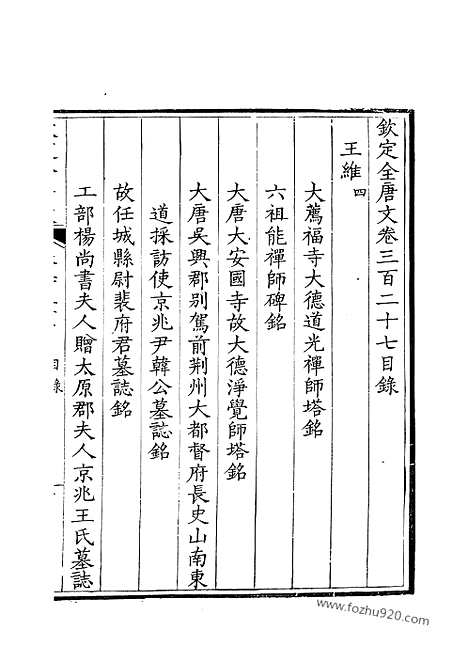 欽定全唐文卷三百二十七目錄
王維四
大薦福寺大德道光禪師塔銘
六祖能禪師碑銘
大唐大安國寺故大德淨覺師塔銘
大唐吳興郡別駕前荆州大都督府長史山南東
道採訪使京兆尹韓公墓誌銘
故任城縣尉裴府君墓誌銘
工部楊尚書夫人贈太原郡夫人京兆王氏墓誌
目錄
www.fozhu920.com